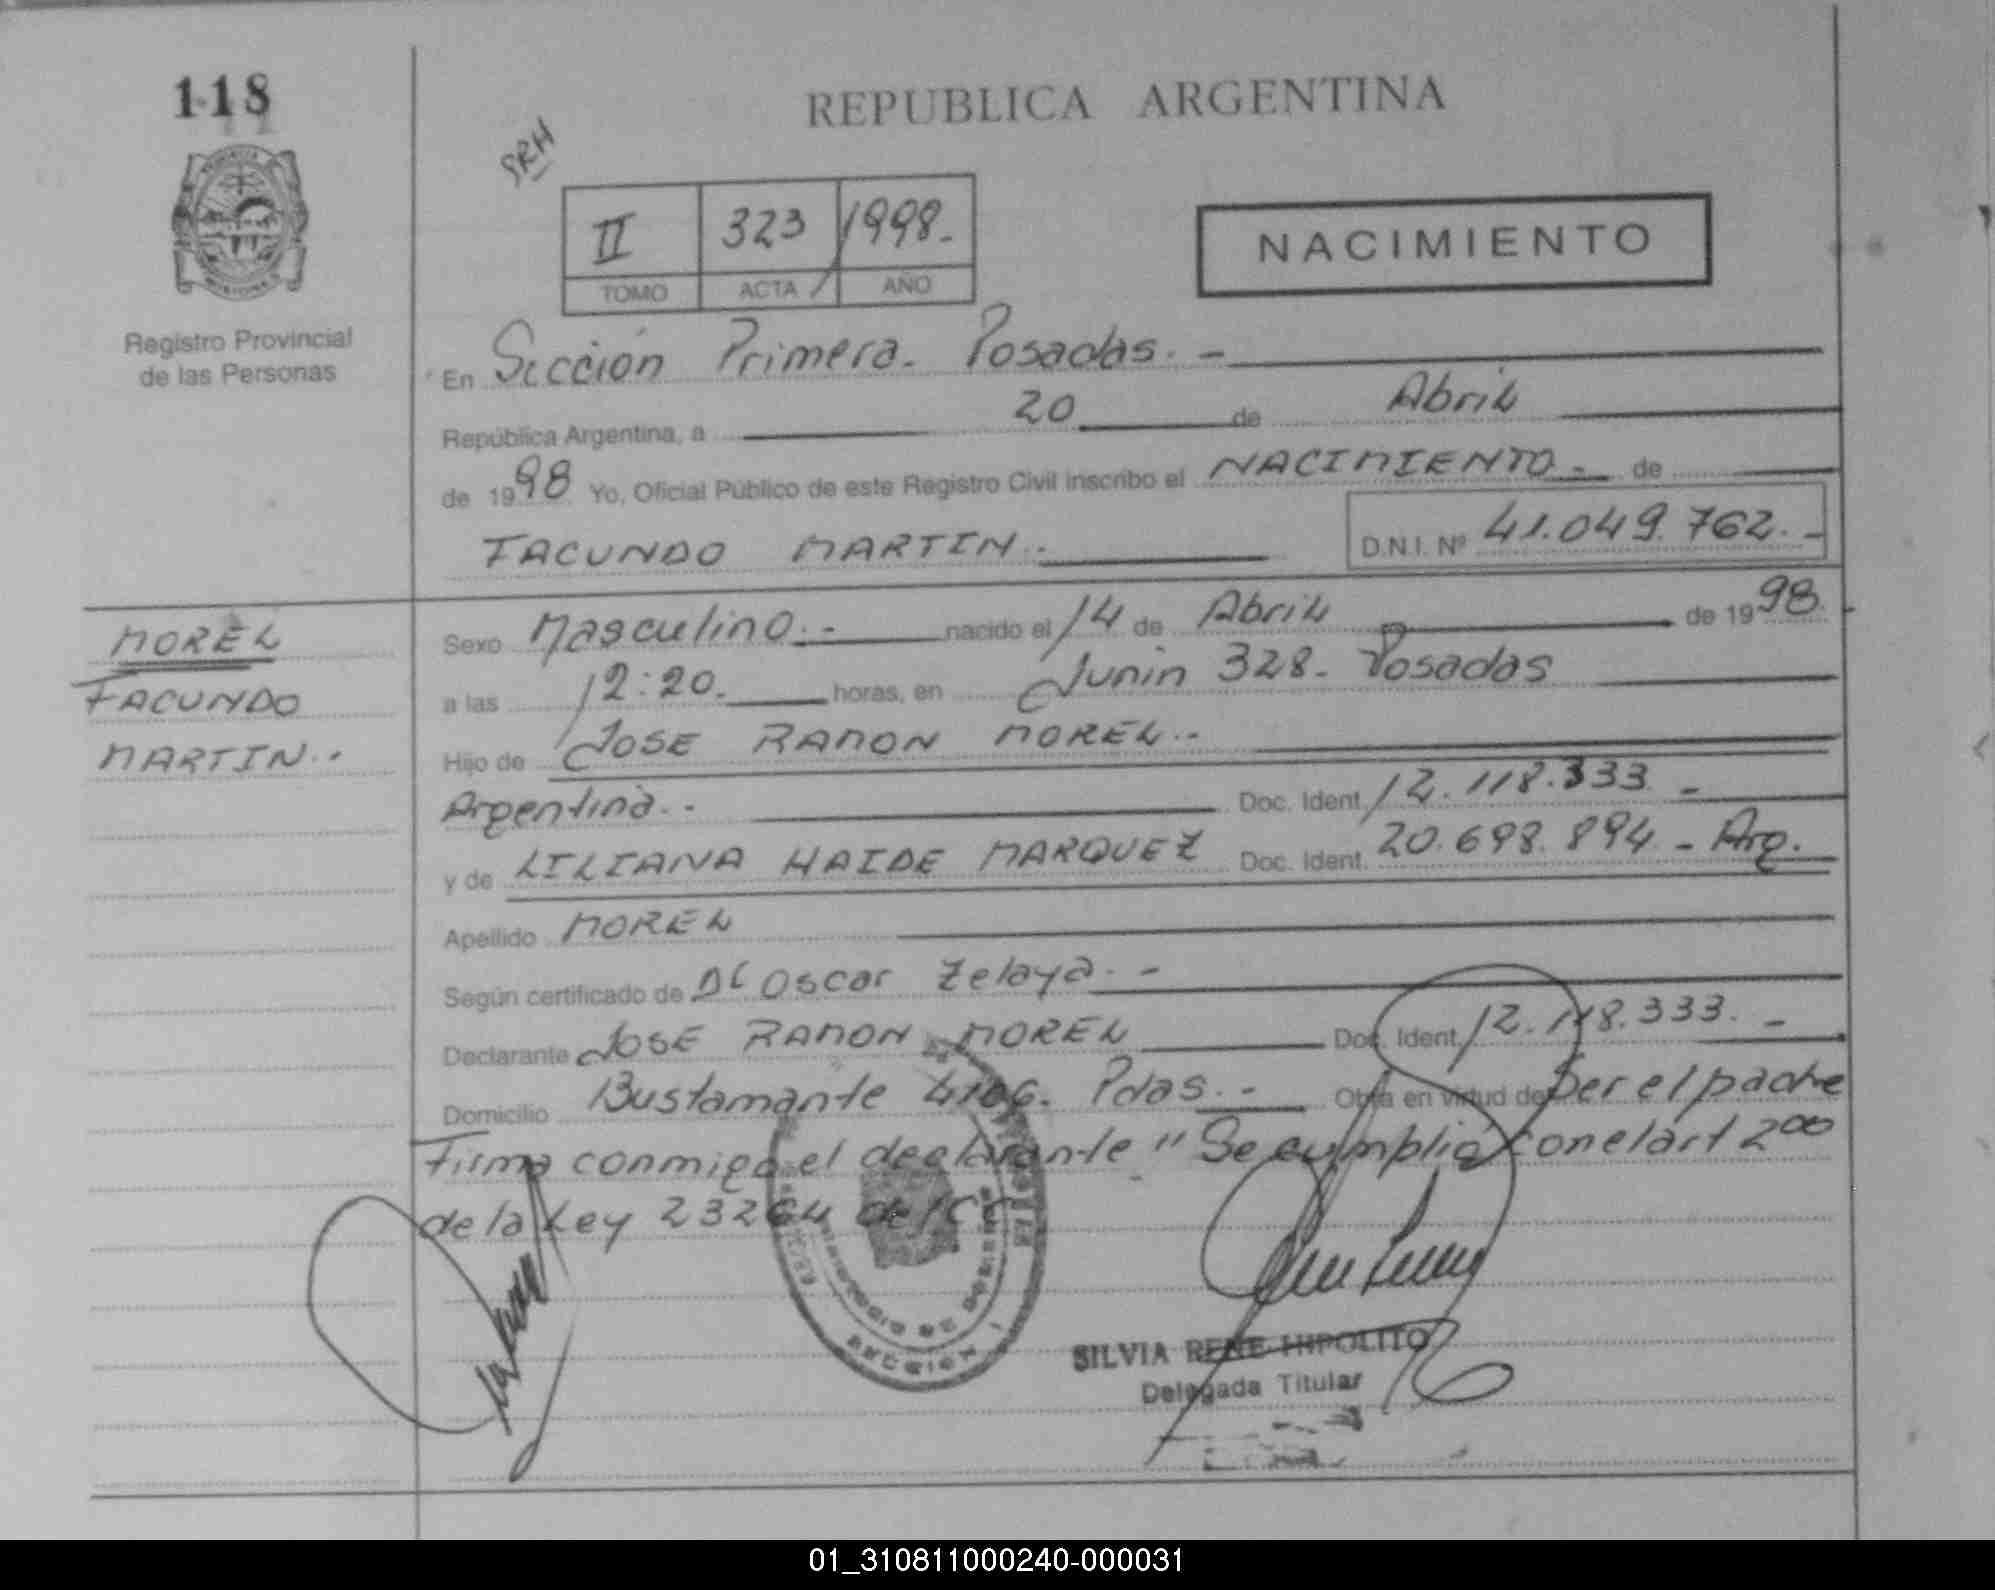 118
REPUBLICA ARGENTINA
SRH
II 323 1998.-
TOMO ACTA / AÑO
NACIMIENTO
Registro Provincial
de las Personas
En Sección Primera. Posadas. -
República Argentina, a 20 de Abril
de 1998 Yo, Oficial Público de este Registro Civil inscribo el NACIMIENTO.- de
FACUNDO MARTIN.- D.N.I. Nº 41.049.762.-
MOREL
FACUNDO
MARTIN.-
Sexo Masculino.- nacido el 14 de Abril de 1998.
a las 12:20. horas, en Junin 328. Posadas
Hijo de JOSE RAMON MOREL.-
Argentina.- Doc. Ident. 12.118.333 -
y de LILIANA HAIDE MARQUEZ Doc. Ident. 20.698.894 - Arg.
Apellido MOREL
Según certificado de Oscar Zelaya. -
Declarante JOSE RAMON MOREL Doc. Ident. 12.118.333. -
Domicilio Bustamante 4106. Pdas. - Obra en virtud de Ser el padre
Firma conmigo el declarante "Se cumplió con el art 200
de la Ley 23264 del CC
SECCION 1
SILVIA RENE HIPOLITO
Delegada Titular
01_310811000240-000031